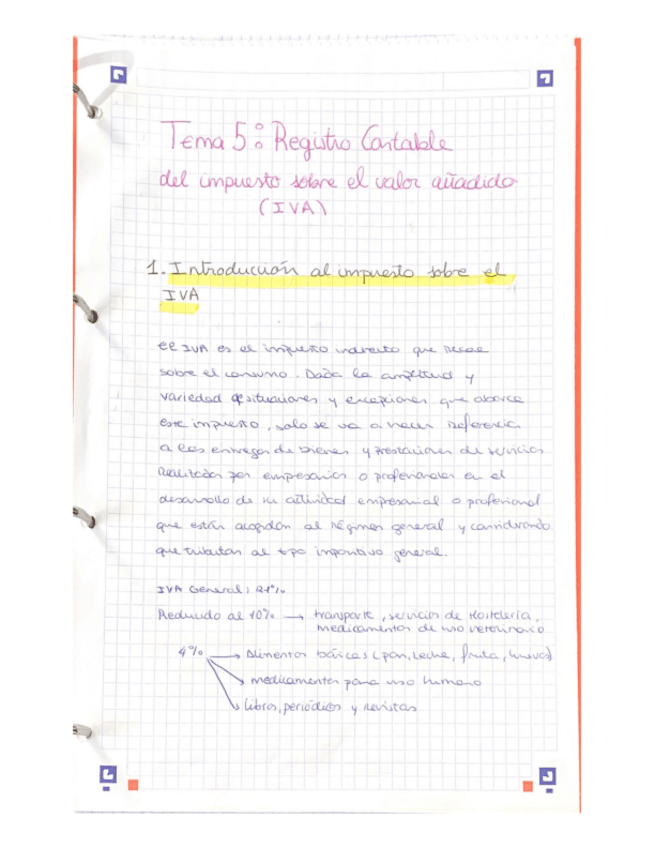 Tema 5: Registro Contable
del impuesto sobre el valor añadido
(IVA)
1. Introducción al impuesto sobre el
IVA
El IVA es el impuesto indirecto que recae
sobre el consumo. Dada la amplitud y
variedad de situaciones y excepciones que abarca
este impuesto, solo se va a hacer referencia
a las entregas de bienes y prestaciones de servicios
realizadas por empresarios o profesionales en el
desarrollo de su actividad empresarial o profesional
que están acogidos al régimen general y considerando
que tributan al tipo impositivo general.
IVA General: 21%
Reducido al 10% → transporte, servicios de hostelería,
medicamentos de uso veterinario
4% → Alimentos básicos (pan, leche, fruta, huevos)
→ medicamentos para uso humano
→ libros, periódicos y revistas